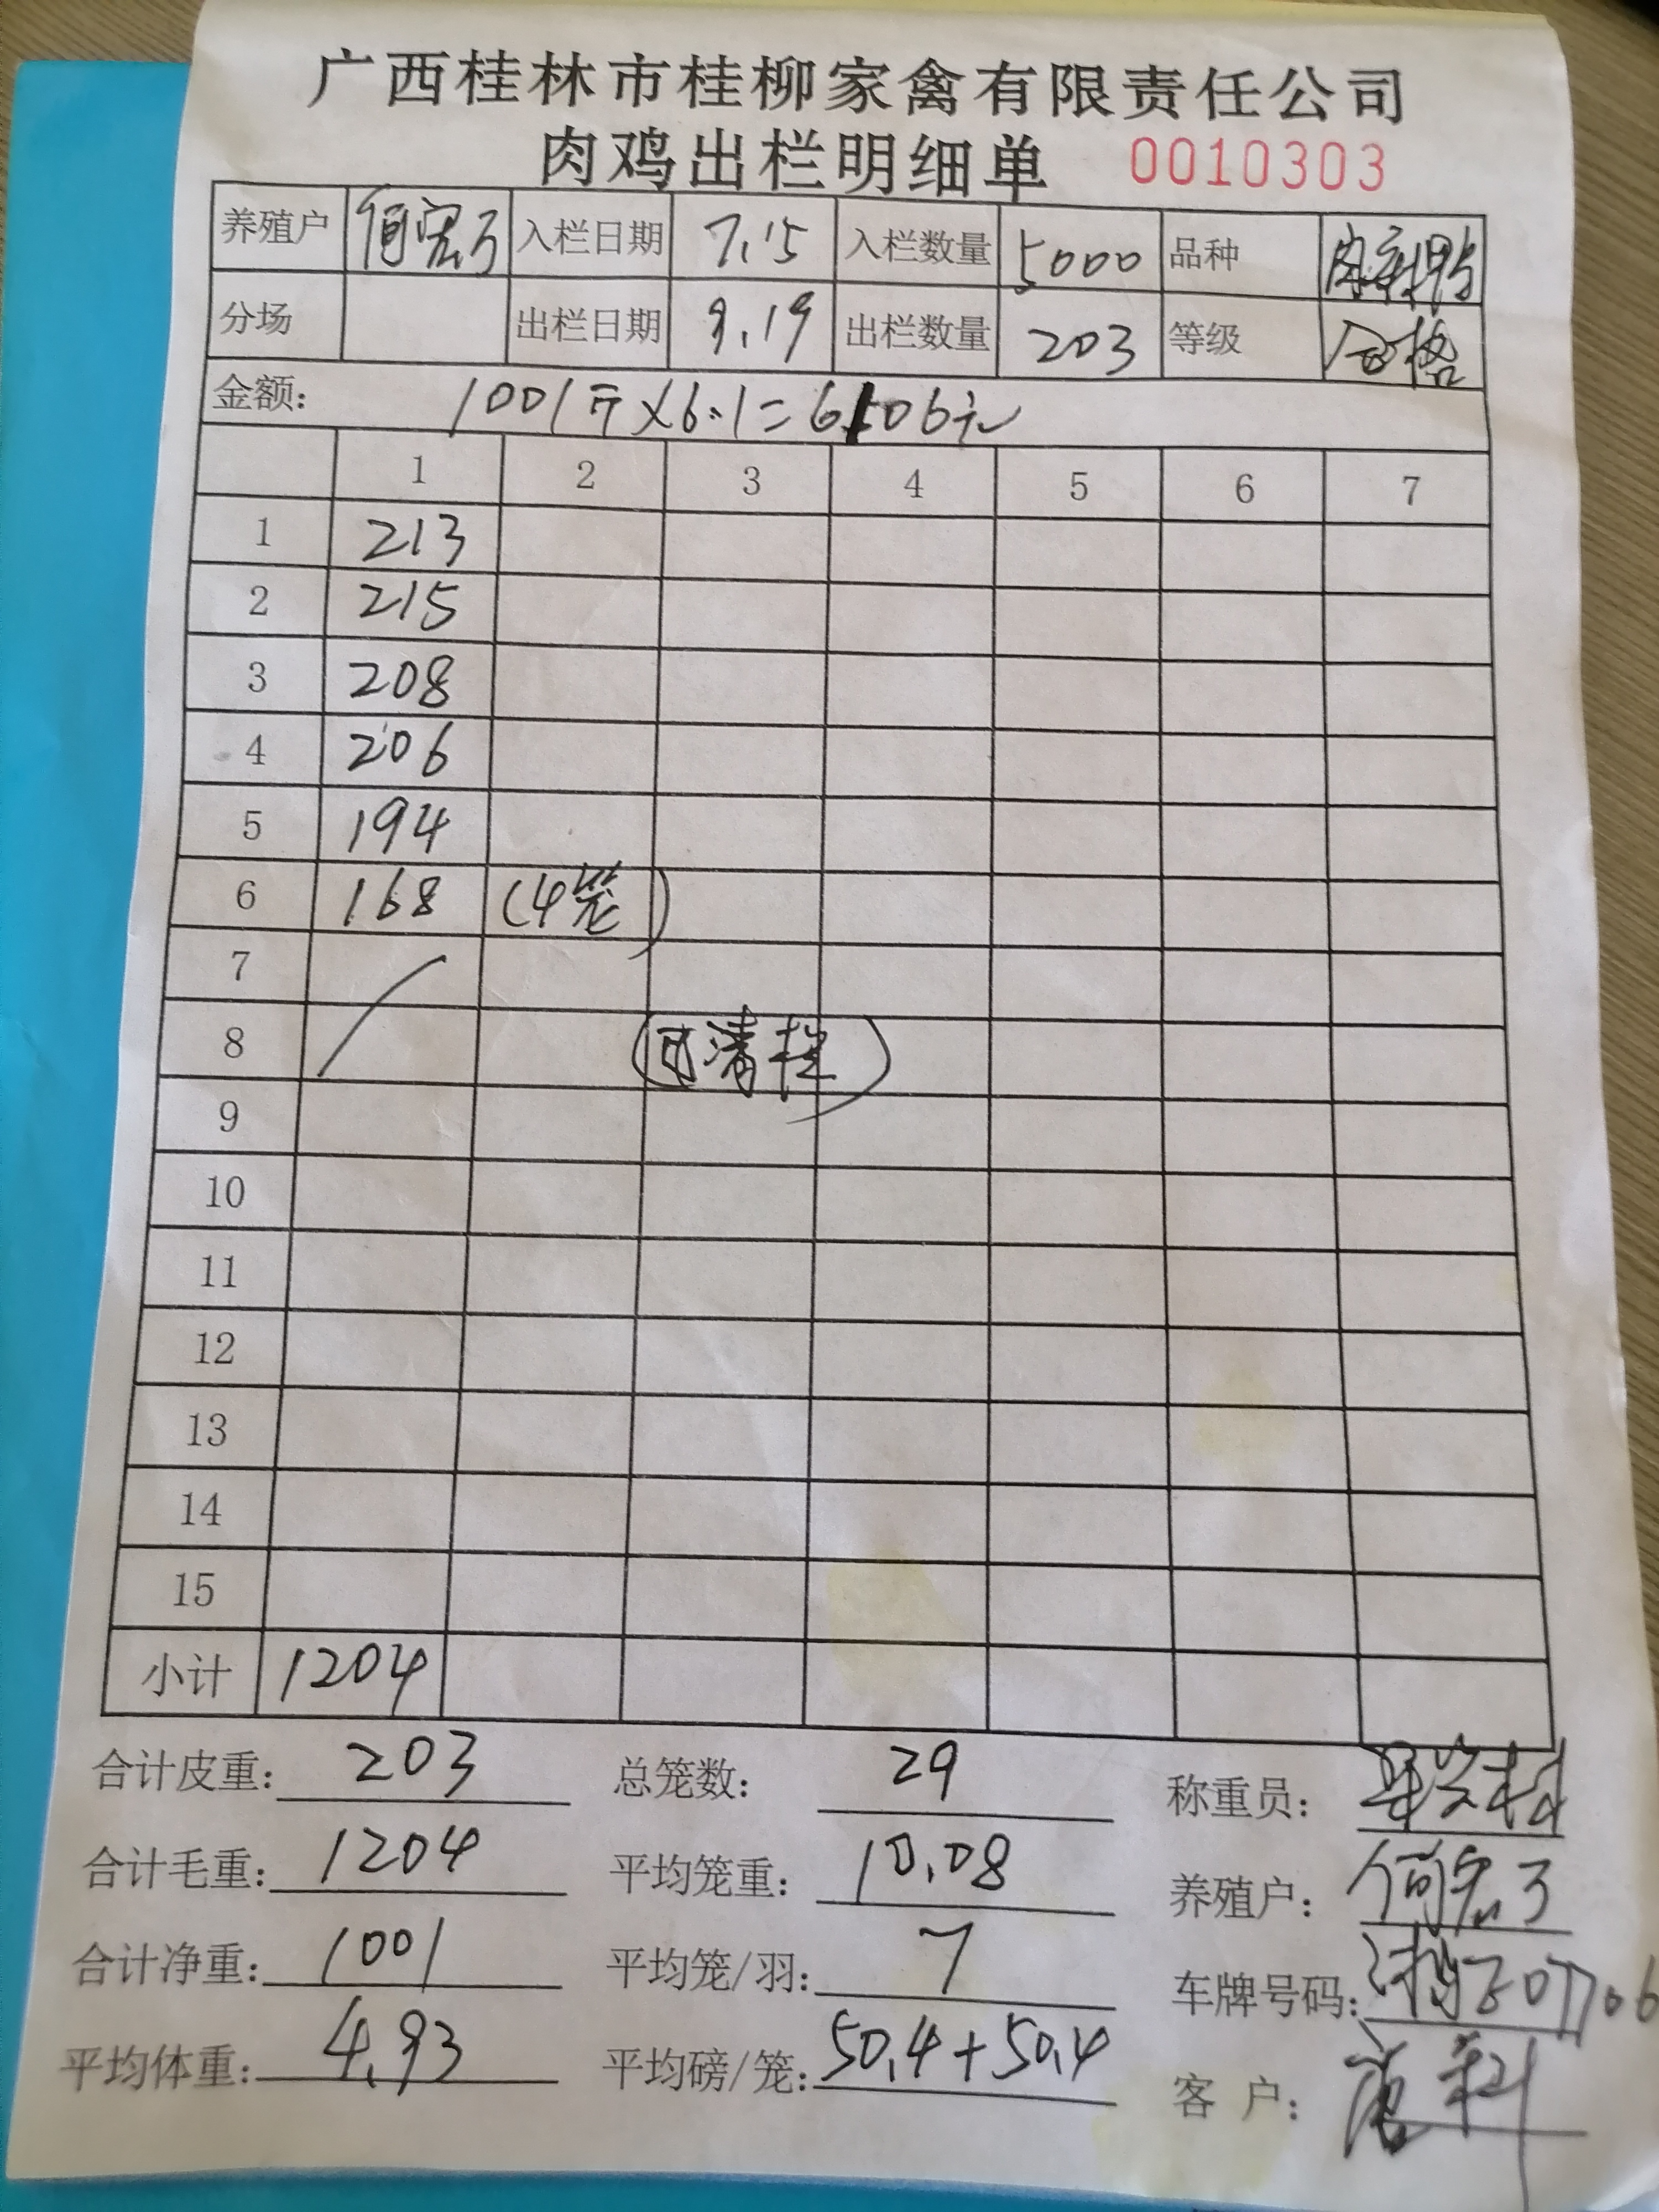 广西桂林市桂柳家禽有限责任公司
肉鸡出栏明细单 0010303
养殖户 入栏日期 7.15 入栏数量 5000 品种
分场 出栏日期 9.19 出栏数量 203 等级 合格
金额: 1001斤×6.1=6106元
1 2 3 4 5 6 7
1 213
2 215
3 208
4 206
5 194
6 168 (4笼)
7
8 清栏
9
10
11
12
13
14
15
小计 1204
合计皮重: 203 总笼数: 29 称重员:
合计毛重: 1204 平均笼重: 10.08 养殖户:
合计净重: 1001 平均笼/羽: 7 车牌号码:
平均体重: 4.93 平均磅/笼: 50.4+50.4 客 户: